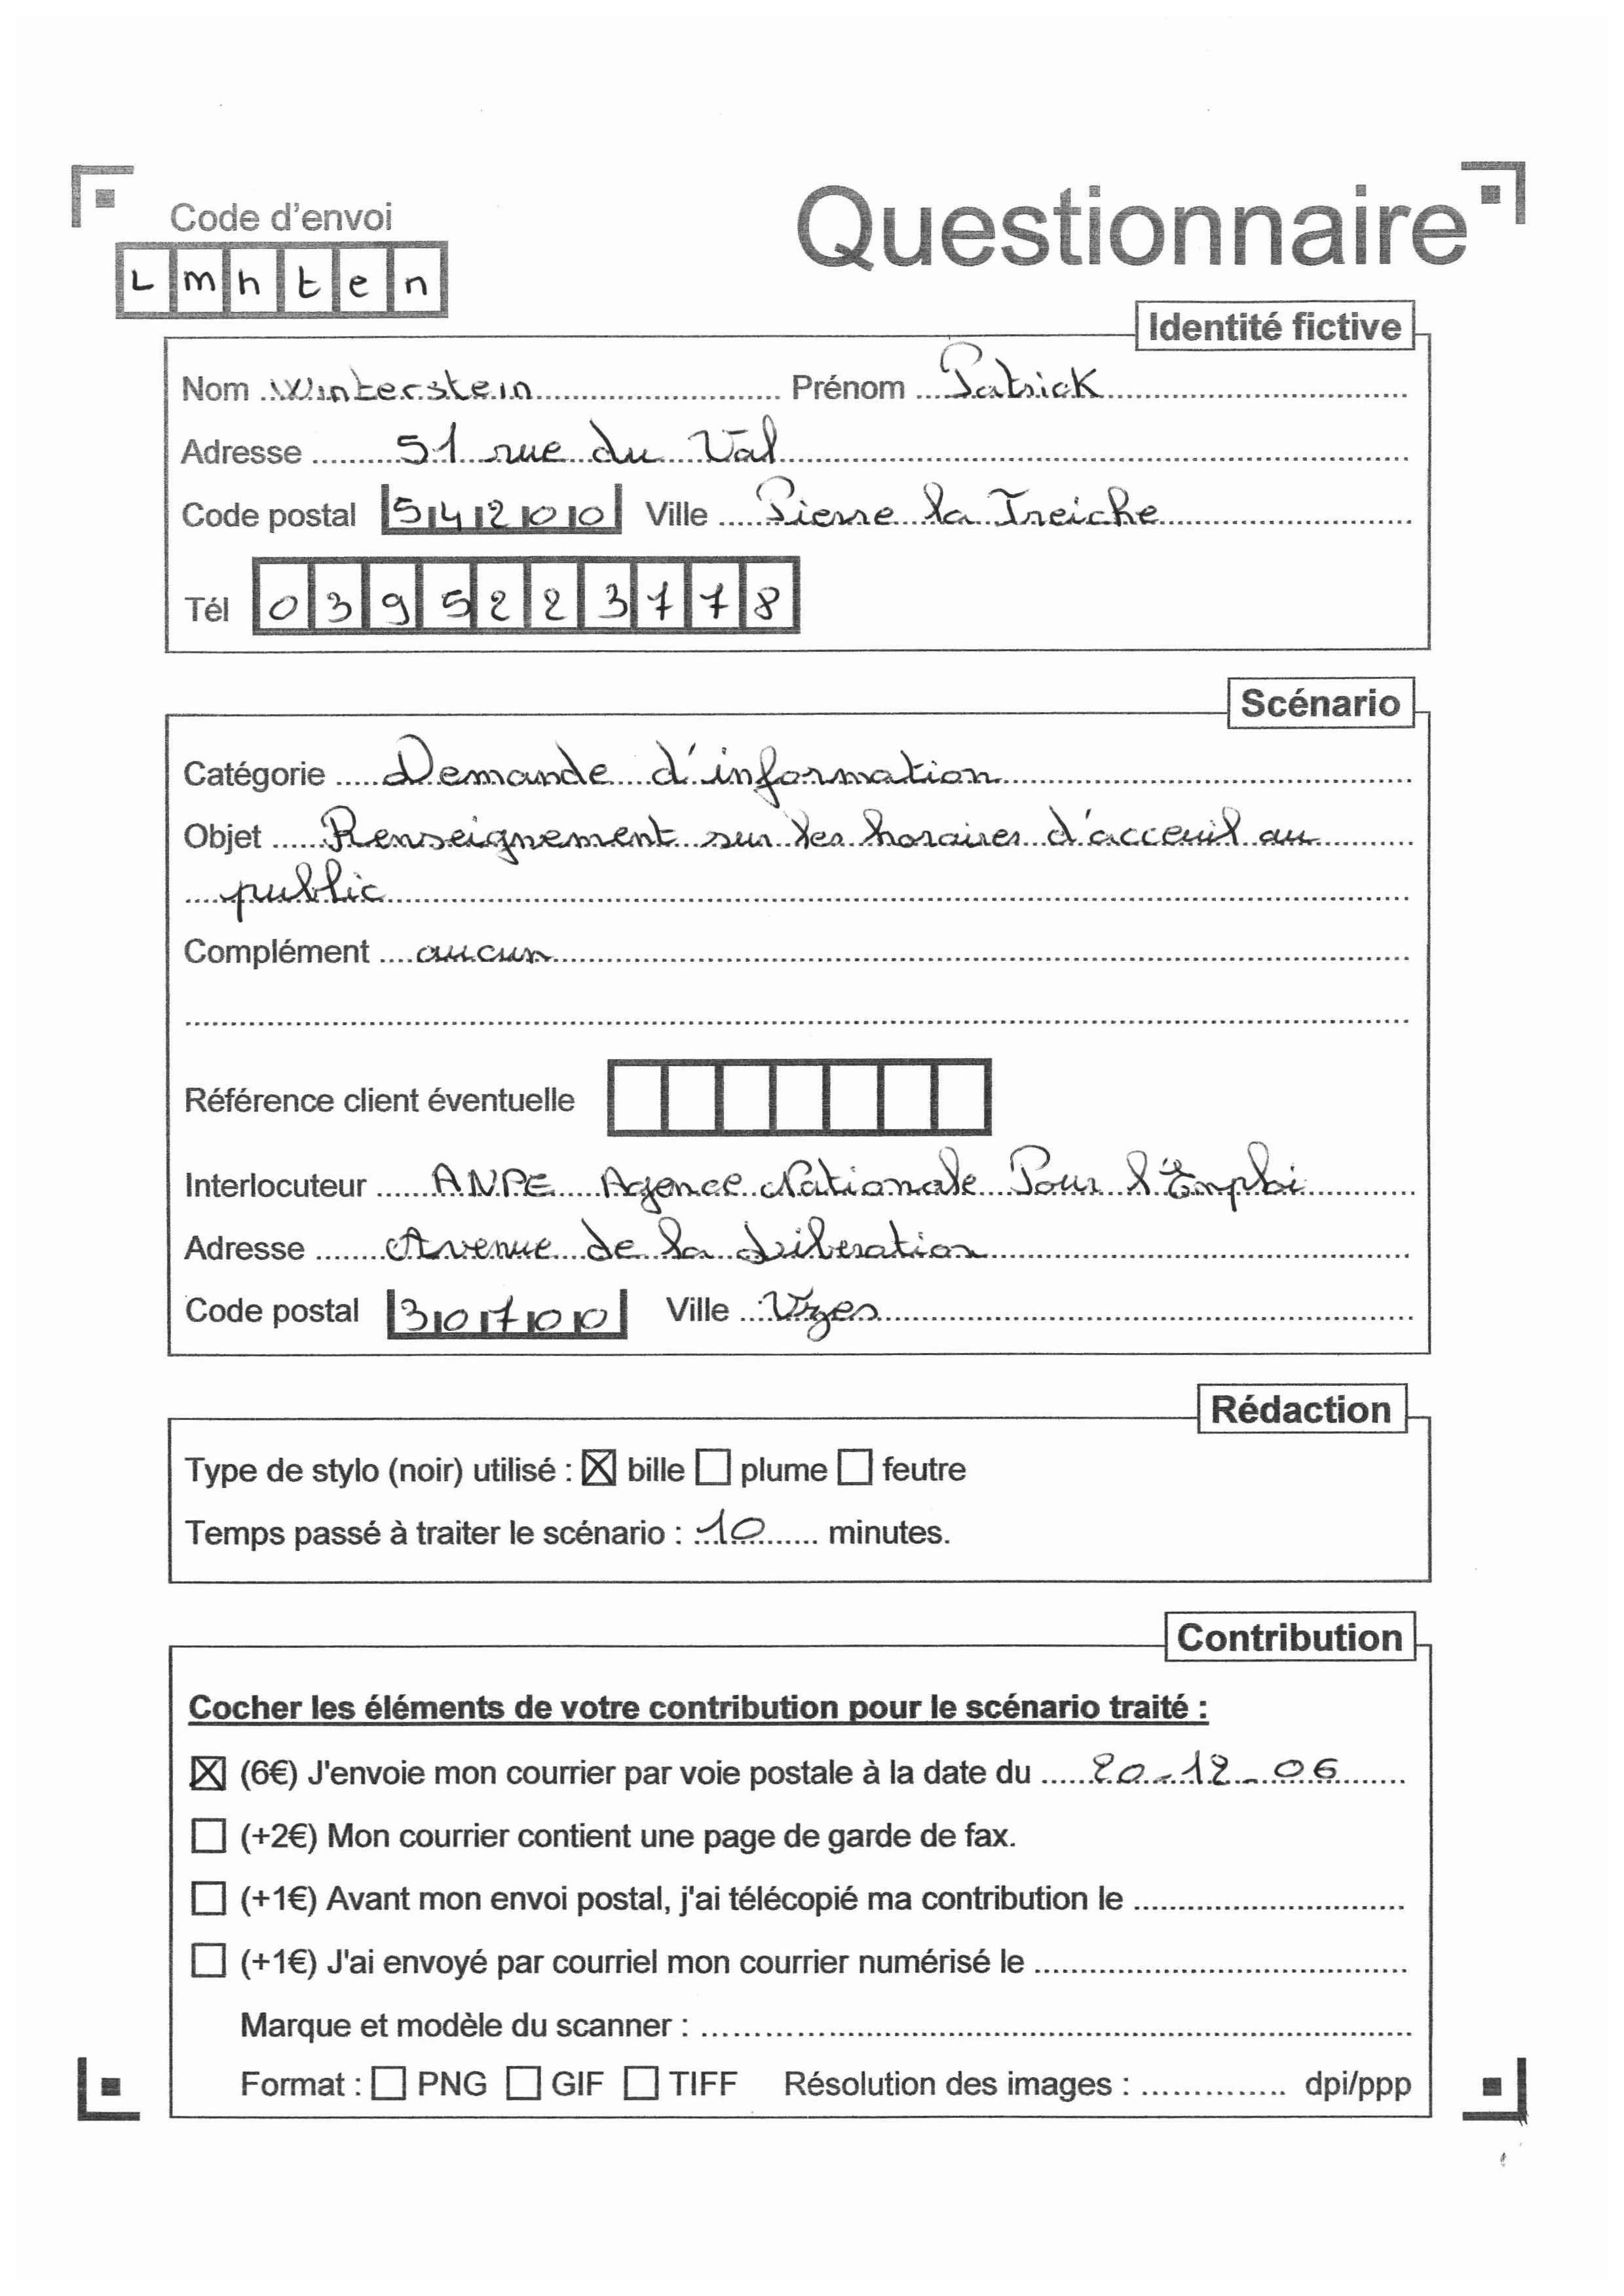 Code d'envoi
Questionnaire
L m h t e n
Identité fictive
Nom Winterstein Prénom Patrick
Adresse 51 rue du Val
Code postal 54200 Ville Pierre la Treiche
Tél 0395223778
Scénario
Catégorie Demande d'information
Objet Renseignement sur les horaires d'acceuil au
public
Complément aucun
Référence client éventuelle
Interlocuteur ANPE Agence Nationale Pour l'Emploi
Adresse Avenue de la Liberation
Code postal 30700 Ville Uzes
Rédaction
Type de stylo (noir) utilisé : ☒ bille ☐ plume ☐ feutre
Temps passé à traiter le scénario : 10 minutes.
Contribution
Cocher les éléments de votre contribution pour le scénario traité :
☒ (6€) J'envoie mon courrier par voie postale à la date du 20-12-06
☐ (+2€) Mon courrier contient une page de garde de fax.
☐ (+1€) Avant mon envoi postal, j'ai télécopié ma contribution le
☐ (+1€) J'ai envoyé par courriel mon courrier numérisé le
Marque et modèle du scanner :
Format : ☐ PNG ☐ GIF ☐ TIFF Résolution des images : dpi/ppp